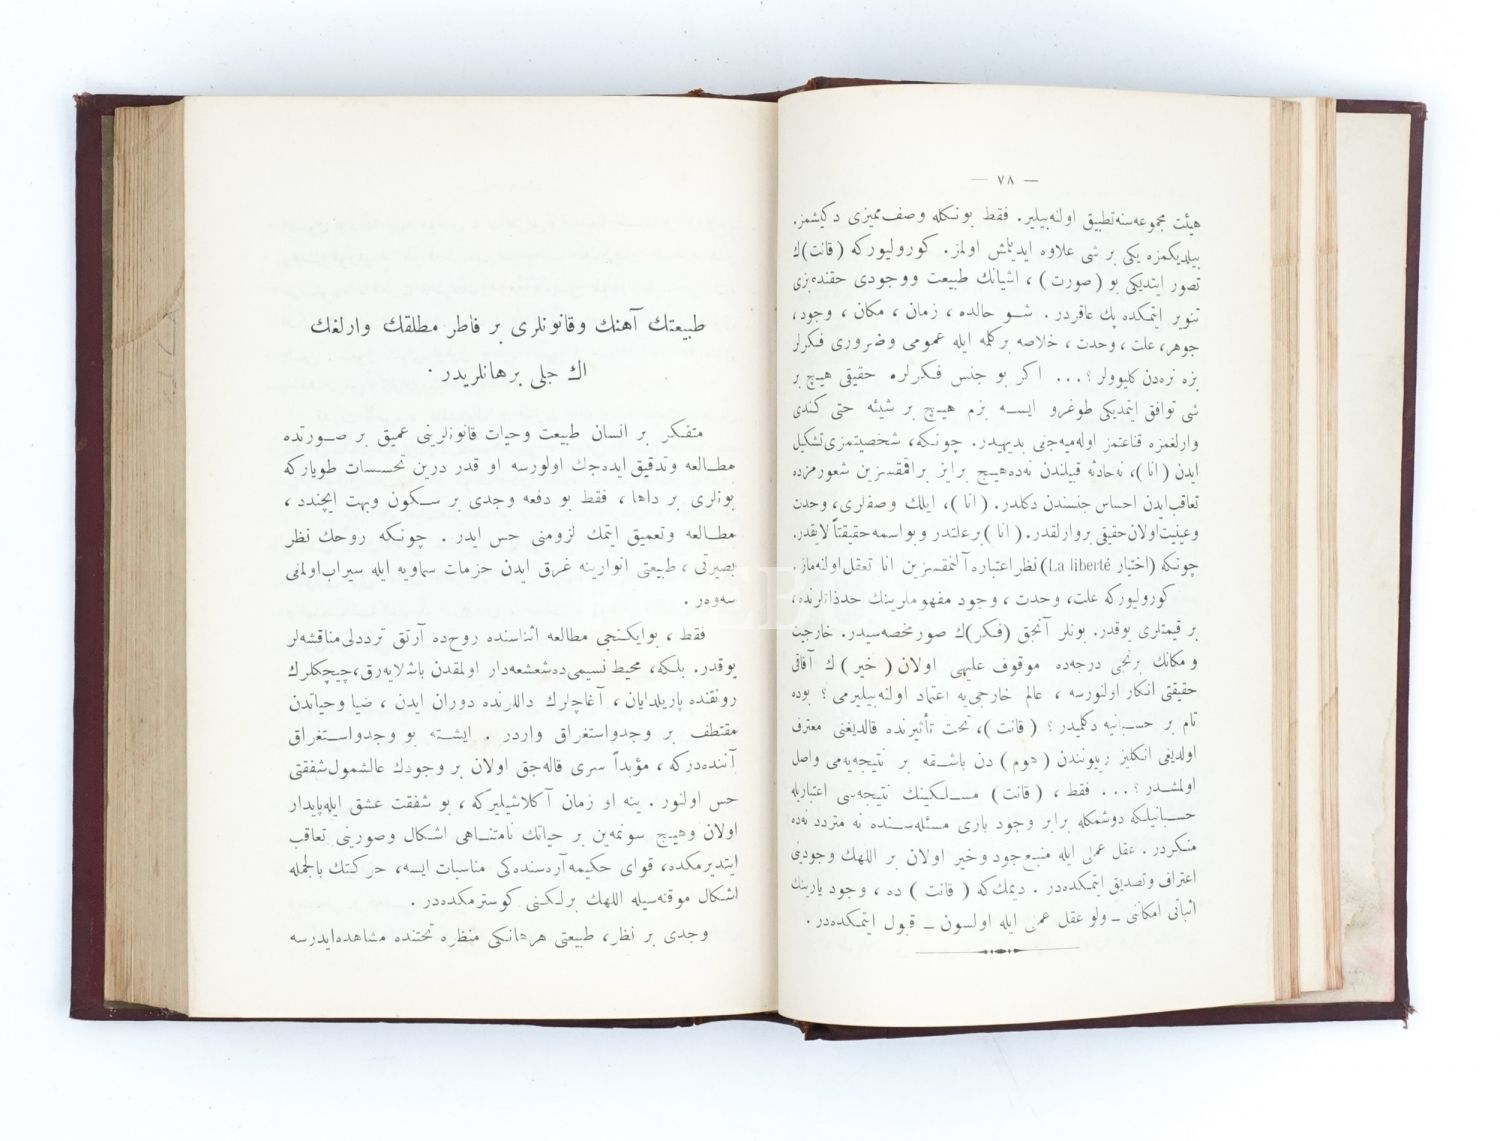 — ٧٨ —
هيئت مجموعه‌سنه تطبيق اولنه‌بيلير. فقط بونكله وصف مميزى دكيشمز.
بيلديكمزه يكى بر شى علاوه ايدلمش اولمز. كورولیوركه (قانت)ك
تصور ايتديكى بو (صورت)، اشيانك طبيعت ووجودى حقنده بزى
تنوير ايتمكده پك عاقردر. شو حالده، زمان، مكان، وجود،
جوهر، علت، وحدت، خلاصه بركلمه ايله عمومى وضرورى فكرلر
بزه نره‌دن كليوولر؟... اكر بو جنس فكرلره حقيقى هيچ بر
شى توافق ايتمديكى طوغرو ايسه بزم هيچ بر شيئه حتى كندى
وارلغمزه قناعتمز اوله‌ميه‌جغى بديهيدر. چونكه، شخصيتمزى تشكيل
ايدن (انا)، نه‌حادثه قبيلندن نده‌هيچ برايز براقمقسزين شعورمزده
تعاقب ايدن احساس جنسندن دكلدر. (انا)، ايلك وصفلرى، وحدت
وعينيت اولان حقيقى بروارلقدر. (انا) برعلتدر وبواسمه حقيقتاً لايقدر.
چونكه (اختيار La liberté) نظر اعتباره آلنمقسزين انا تعقل اولنه‌ماز.
كورولیوركه علت، وحدت، وجود مفهوملرينك حدذاتلرنده،
بر قيمتلرى يوقدر. بونلر آنجق (فكر)ك صور مخصه‌سيدر. خارجيت
ومكانك برنجى درجه‌ده موقوف عليهى اولان (خير)ك آفاقى
حقيقتى انكار اولنورسه، عالم خارجى‌يه اعتماد اولنه‌بيليرمى؟ بوده
تام بر حسبانيه دكلميدر؟ (قانت)، تحت تأثيرنده قالديغنى معترف
اولديغى انكليز ريبونندن (هوم)دن باشقه بر نتيجه‌يه‌مى واصل
اولمشدر؟... فقط، (قانت) مسلكينك نتيجه‌سى اعتباريله
حسبانيلكه دوشمكله برابر وجود بارى مسئله‌سنده نه متردد نه‌ده
منكردر. عقل عملى ايله منبع جود وخير اولان بر اللهك وجودينى
اعتراف وتصديق ايتمكده‌در. ديمك كه (قانت) ده، وجود بارينك
اثباتى امكانى ـ ولو عقل عملى ايله اولسون ـ قبول ايتمكده‌در.
طبيعتك آهنك وقانونلرى بر فاطر مطلقك وارلغك
اك جلى برهانلريدر.
متفكر بر انسان طبيعت وحيات قانونلرينى عميق بر صورتده
مطالعه وتدقيق ايده‌جك اولورسه او قدر درين تحسسات طوياركه
بونلرى بر داها، فقط بو دفعه وجدى بر سكون وبهت ايچندد،
مطالعه وتعميق ايتمك لزومنى حس ايدر. چونكه روحك نظر
بصيرتى، طبيعتى انوارينه غرق ايدن حزمات سماويه ايله سيراب اولمنى
سه‌وه‌ر.
فقط، بوايكنجى مطالعه اثناسنده روح‌ده آرتق ترددلى مناقشه‌لر
يوقدر. بلكه، محيط نسيمى‌ده شعشعه‌دار اولمقدن باشلايه‌رق، چيچكلرك
رونقنده پاريلدايان، آغاچلرك داللرنده دوران ايدن، ضيا وحياتدن
مقتطف بر وجدواستغراق واردر. ايشته بو وجدواستغراق
آننده‌دركه، مؤبداً سرى قاله‌جق اولان بر وجودك عالمشمول شفقتى
حس اولنور. ينه او زمان آكلاشيليركه، بو شفقت عشق ايله پايدار
اولان وهيچ سونمه‌ين بر حياتك نامتناهى اشكال وصورينى تعاقب
ايتديرمكده، قواى حكيمه آره‌سنده‌كى مناسبات ايسه، حركتك بالجمله
اشكال موقته‌سيله اللهك برلكنى كوسترمكده‌در.
وجدى بر نظر، طبيعتى هرهانكى منظره تحتنده مشاهده‌ايدرسه